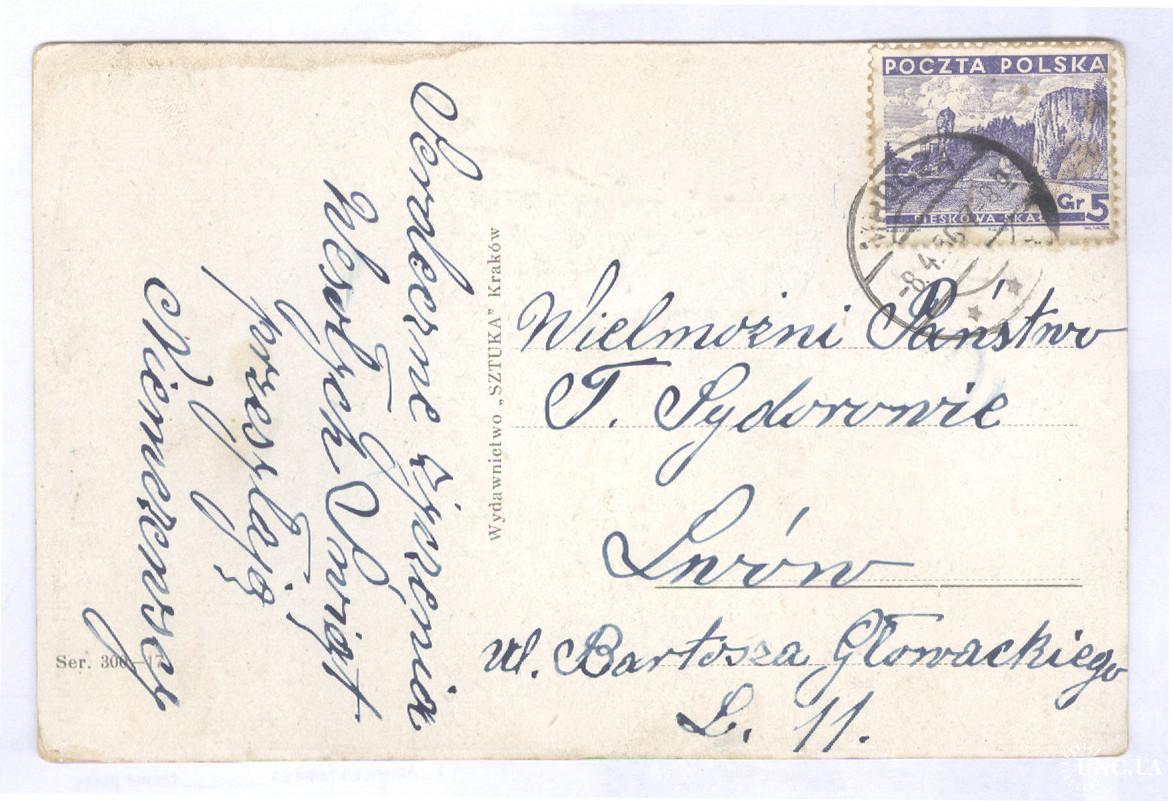 Serdeczne życzenia
Wesołych Świąt
przesyłają
Wydawnictwo „SZTUKA” Kraków
Ser. 300—17
POCZTA POLSKA
Gr 5
PIESKOWA SKAŁA
MROCZA
-8.4.36
Wielmożni Państwo
T. Sydorowie
Lwów
ul. Bartosza Głowackiego
L. 11.
UNC.UA